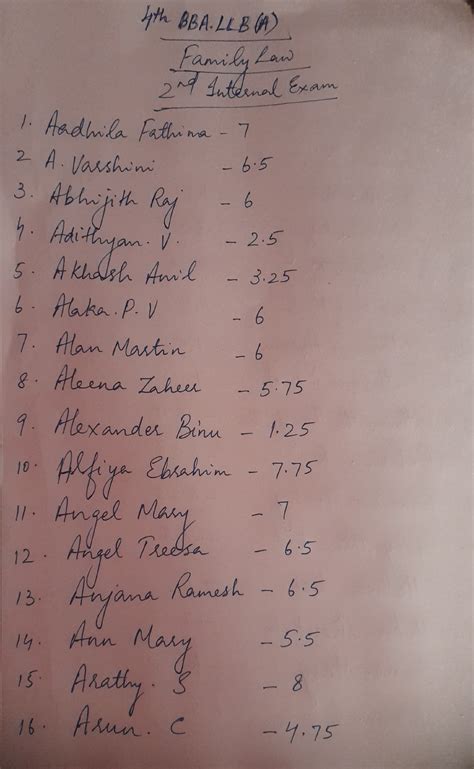 4th BBA.LLB(A)
Family Law
2nd Internal Exam
1. Aadhila Fathima - 7
2 A. Varshini - 6.5
3. Abhijith Raj - 6
4. Adithyan. V. - 2.5
5. Akhash Anil - 3.25
6. Alaka. P. V - 6
7. Alan Martin - 6
8. Aleena Zaheer - 5.75
9. Alexander Binu - 1.25
10. Alfiya Ebrahim - 7.75
11. Angel Mary - 7
12. Angel Treesa - 6.5
13. Anjana Ramesh - 6.5
14. Ann Mary - 5.5
15. Arathy. S - 8
16. Arun. C - 4.75